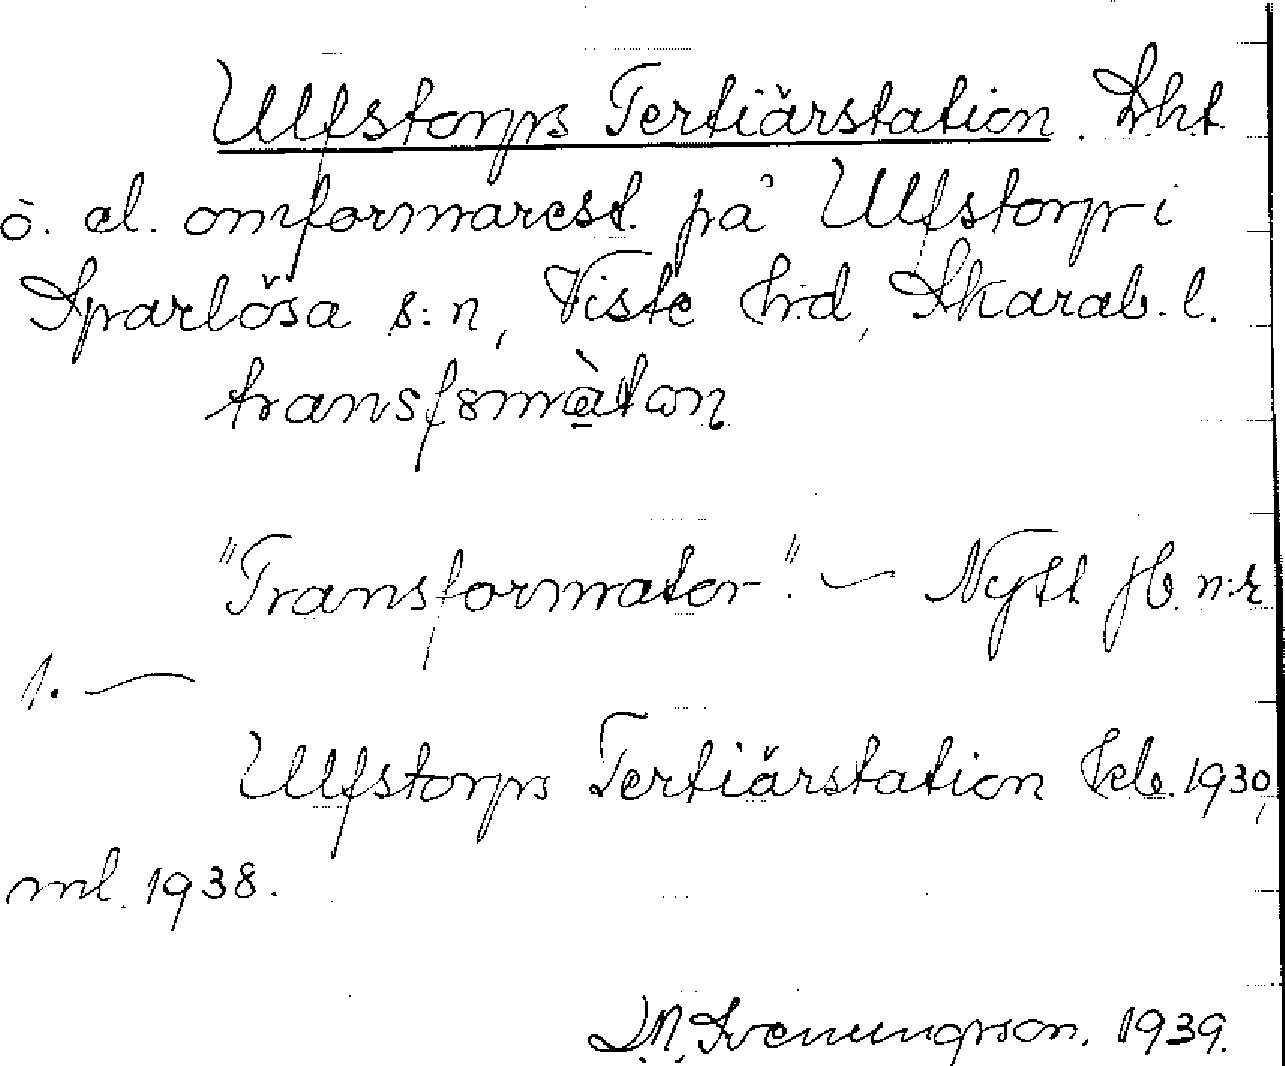 Ulfstorps Tertiärstation. Lht
o. el. omformarest. på Ulfstorp i
Sparlösa s:n, Viste h:d, Skarab. l.
transfsmàtan
"Transformator". — Nytt jb. n:r
1. —
Ulfstorps Tertiärstation Jeb. 1930,
ml. 1938.
D.N. Svenungsson. 1939.